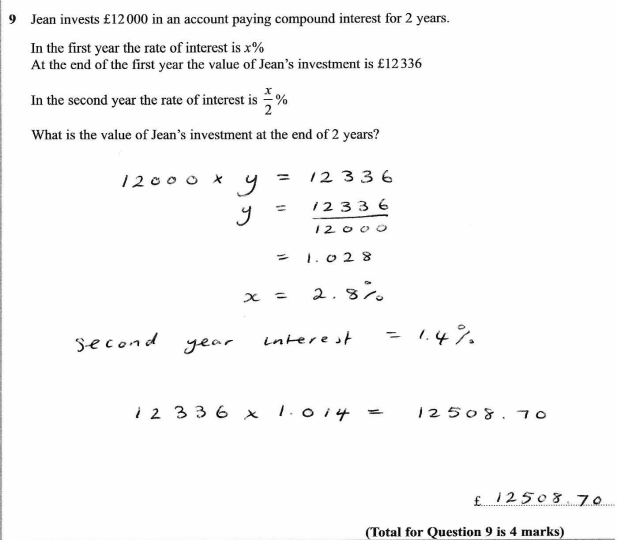 9 Jean invests £12000 in an account paying compound interest for 2 years.
In the first year the rate of interest is x%
At the end of the first year the value of Jean's investment is £12336
In the second year the rate of interest is x/2 %
What is the value of Jean's investment at the end of 2 years?
12000 × y = 12336
y = 12336/12000
= 1.028
x = 2.8%
second year interest = 1.4%
12336 × 1.014 = 12508.70
£ 12508.70
(Total for Question 9 is 4 marks)